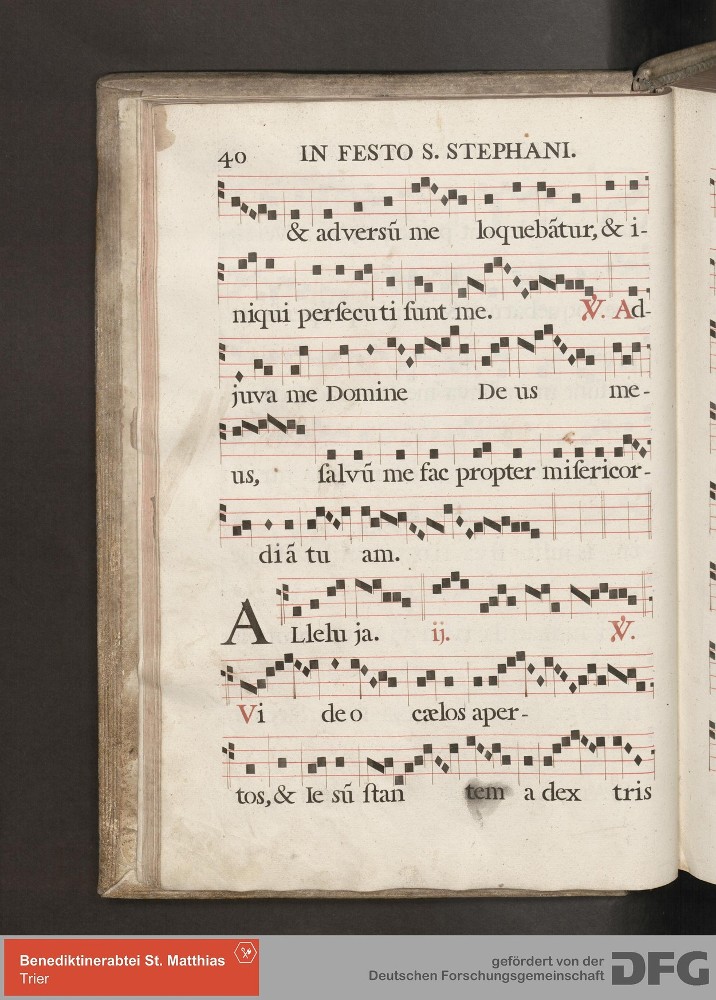 40 IN FESTO S. STEPHANI.
& adversũ me loquebãtur, & i-
niqui perſecuti ſunt me. ℣. Ad-
juva me Domine De us me-
us, ſalvũ me fac propter miſericor-
di ã tu am.
ALlelu ja. ij. ℣.
Vi deo cælos aper-
tos, & Ie sũ ſtan tem a dex tris
Benediktinerabtei St. Matthias
Trier
gefördert von der
Deutschen Forschungsgemeinschaft DFG